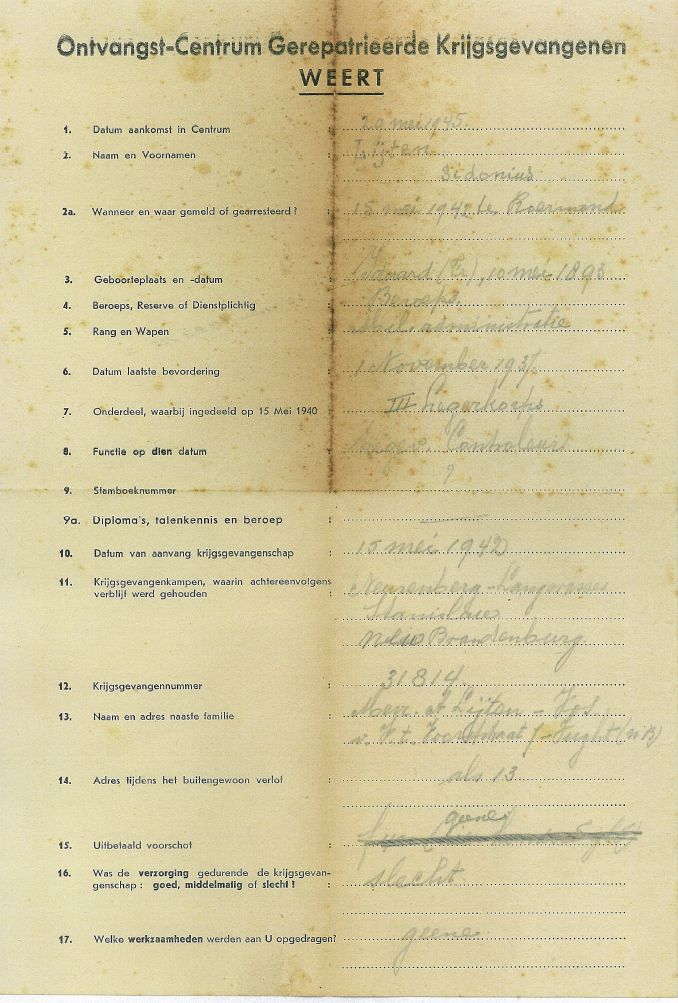 Ontvangst-Centrum Gerepatrieerde Krijgsgevangenen
WEERT
1. Datum aankomst in Centrum : 29 mei 1945.
2. Naam en Voornamen : Lijten
Sidonius
2a. Wanneer en waar gemeld of gearresteerd? : 15 mei 1942 te Roermond
3. Geboorteplaats en -datum : 10 mei 1898
4. Beroeps, Reserve of Dienstplichtig : Beroeps
5. Rang en Wapen : administratie
6. Datum laatste bevordering : 1 November 1937.
7. Onderdeel, waarbij ingedeeld op 15 Mei 1940 : III Legerkorps
8. Functie op dien datum : Controleur
9. Stamboeknummer ?
9a. Diploma's, talenkennis en beroep : —
10. Datum van aanvang krijgsgevangenschap : 15 mei 1942
11. Krijgsgevangenkampen, waarin achtereenvolgens
verblijf werd gehouden : Neurenberg - Langwasser
Stanislau
Neu Brandenburg
12. Krijgsgevangennummer : 31814
13. Naam en adres naaste familie : Mevr. Lijten - Vos
Vught (N.B)
14. Adres tijdens het buitengewoon verlof : als 13
15. Uitbetaald voorschot : geene
16. Was de verzorging gedurende de krijgsgevan-
genschap: goed, middelmatig of slecht? : slecht.
17. Welke werkzaamheden werden aan U opgedragen? geene